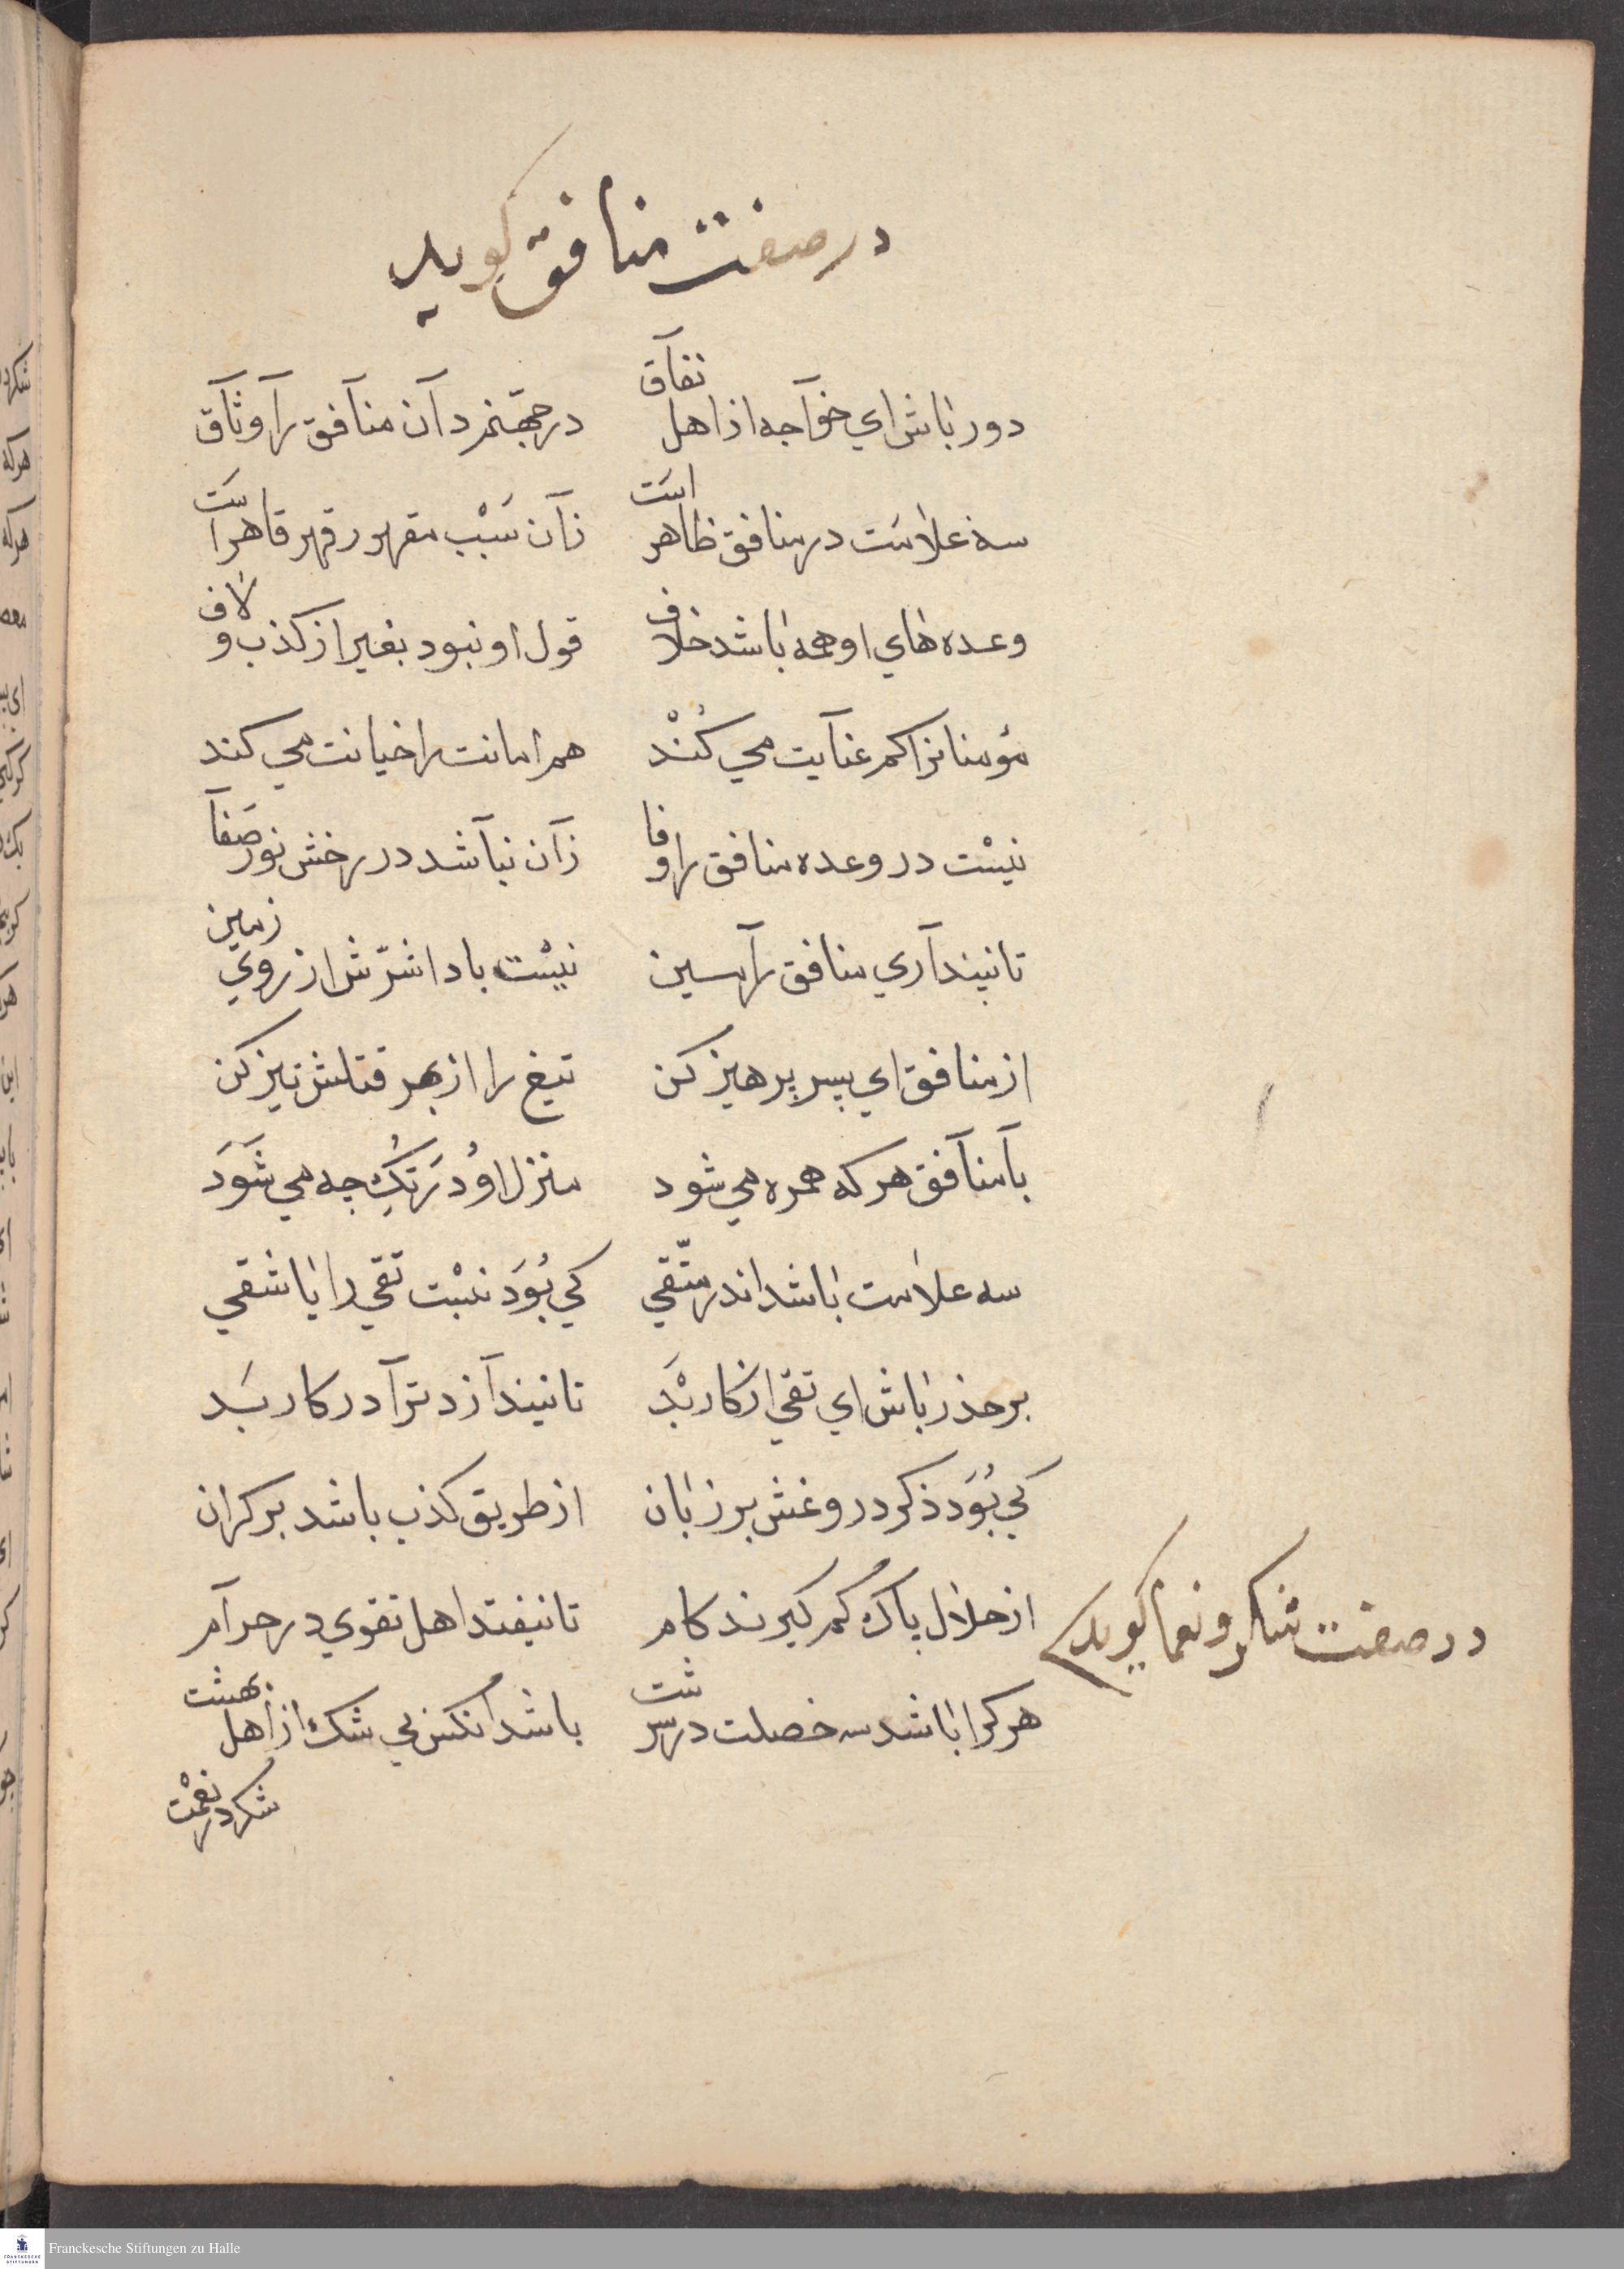 در صفت منافق كويد
دور باش اي خواجه از اهل نفاق در جهنم دان منافق را وثاق
سه علامت در منافق ظاهر است زان سبب مقهور قهر قاهر است
وعده هاي او همه باشد خلاف قول او نبود بغير از كذب و لاف
مؤمنانرا كم عنايت مي كند هم امانت را خيانت مي كند
نيست در وعده منافق را وفا زان نباشد در رخش نور صفا
تا نپنداري منافق را امين نيست بادا شرش از روي زمين
از منافق اي پسر پرهيز كن تيغ را از بهر قتلش تيز كن
با منافق هر كه همره مي شود منزل او در تك چه مي شود
سه علامت باشد اندر متقي كي بود نسبت تقي را با شقي
بر حذر باش اي تقي از كار بد تا نيندازد ترا در كار بد
كي بود ذكر دروغش بر زبان از طريق كذب باشد بر كران
از حلال پاك كم كيرند كام تا نيفتد اهل تقوي در حرام
در صفت شكر و نعما كويد
هر كرا باشد سه خصلت در سرشت باشد انكس بي شك از اهل بهشت
شكر در نعمت
Franckesche Stiftungen zu Halle